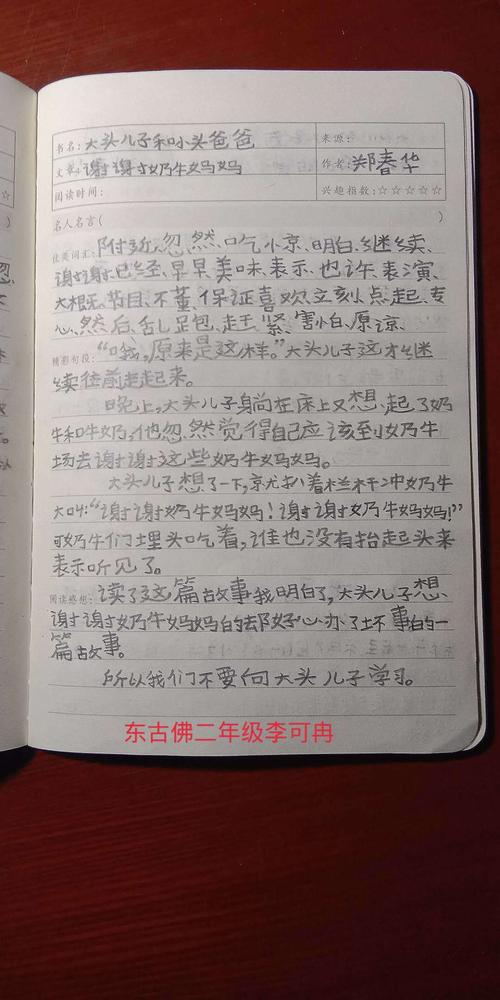 书名:大头儿子和小头爸爸 来源:
文章:谢谢奶牛妈妈 作者:郑春华
阅读时间: 兴趣指数:☆☆☆☆☆
名人名言( )
佳美词汇:附近、忽然、吃小京、明白、继续、
谢谢、已经、早早美味、表示、也许、表演、
大概、节目、不董、保证喜欢、立刻、点起、专
心、然后、乱足包、赶紧、害怕、原谅、
精彩句段:“哦,原来是这样。”大头儿子这才继
续往前走起来。
晚上,大头儿子身尚在床上又想起了奶
牛和牛奶,他忽然觉得自己应该到奶牛
场去谢谢这些奶牛妈妈。
大头儿子想了一下,京尤扒着栏杆冲奶牛
大叫:“谢谢奶牛妈妈!谢谢奶牛妈妈!”
可奶牛们埋头吃着,谁也没有抬起头来
表示听见了。
阅读感想:读了这篇故事我明白了,大头儿子想
谢谢奶牛妈妈的去阝好心办了坏事的一
篇故事。
所以我们不要向大头儿子学习。
东古佛二年级李可冉